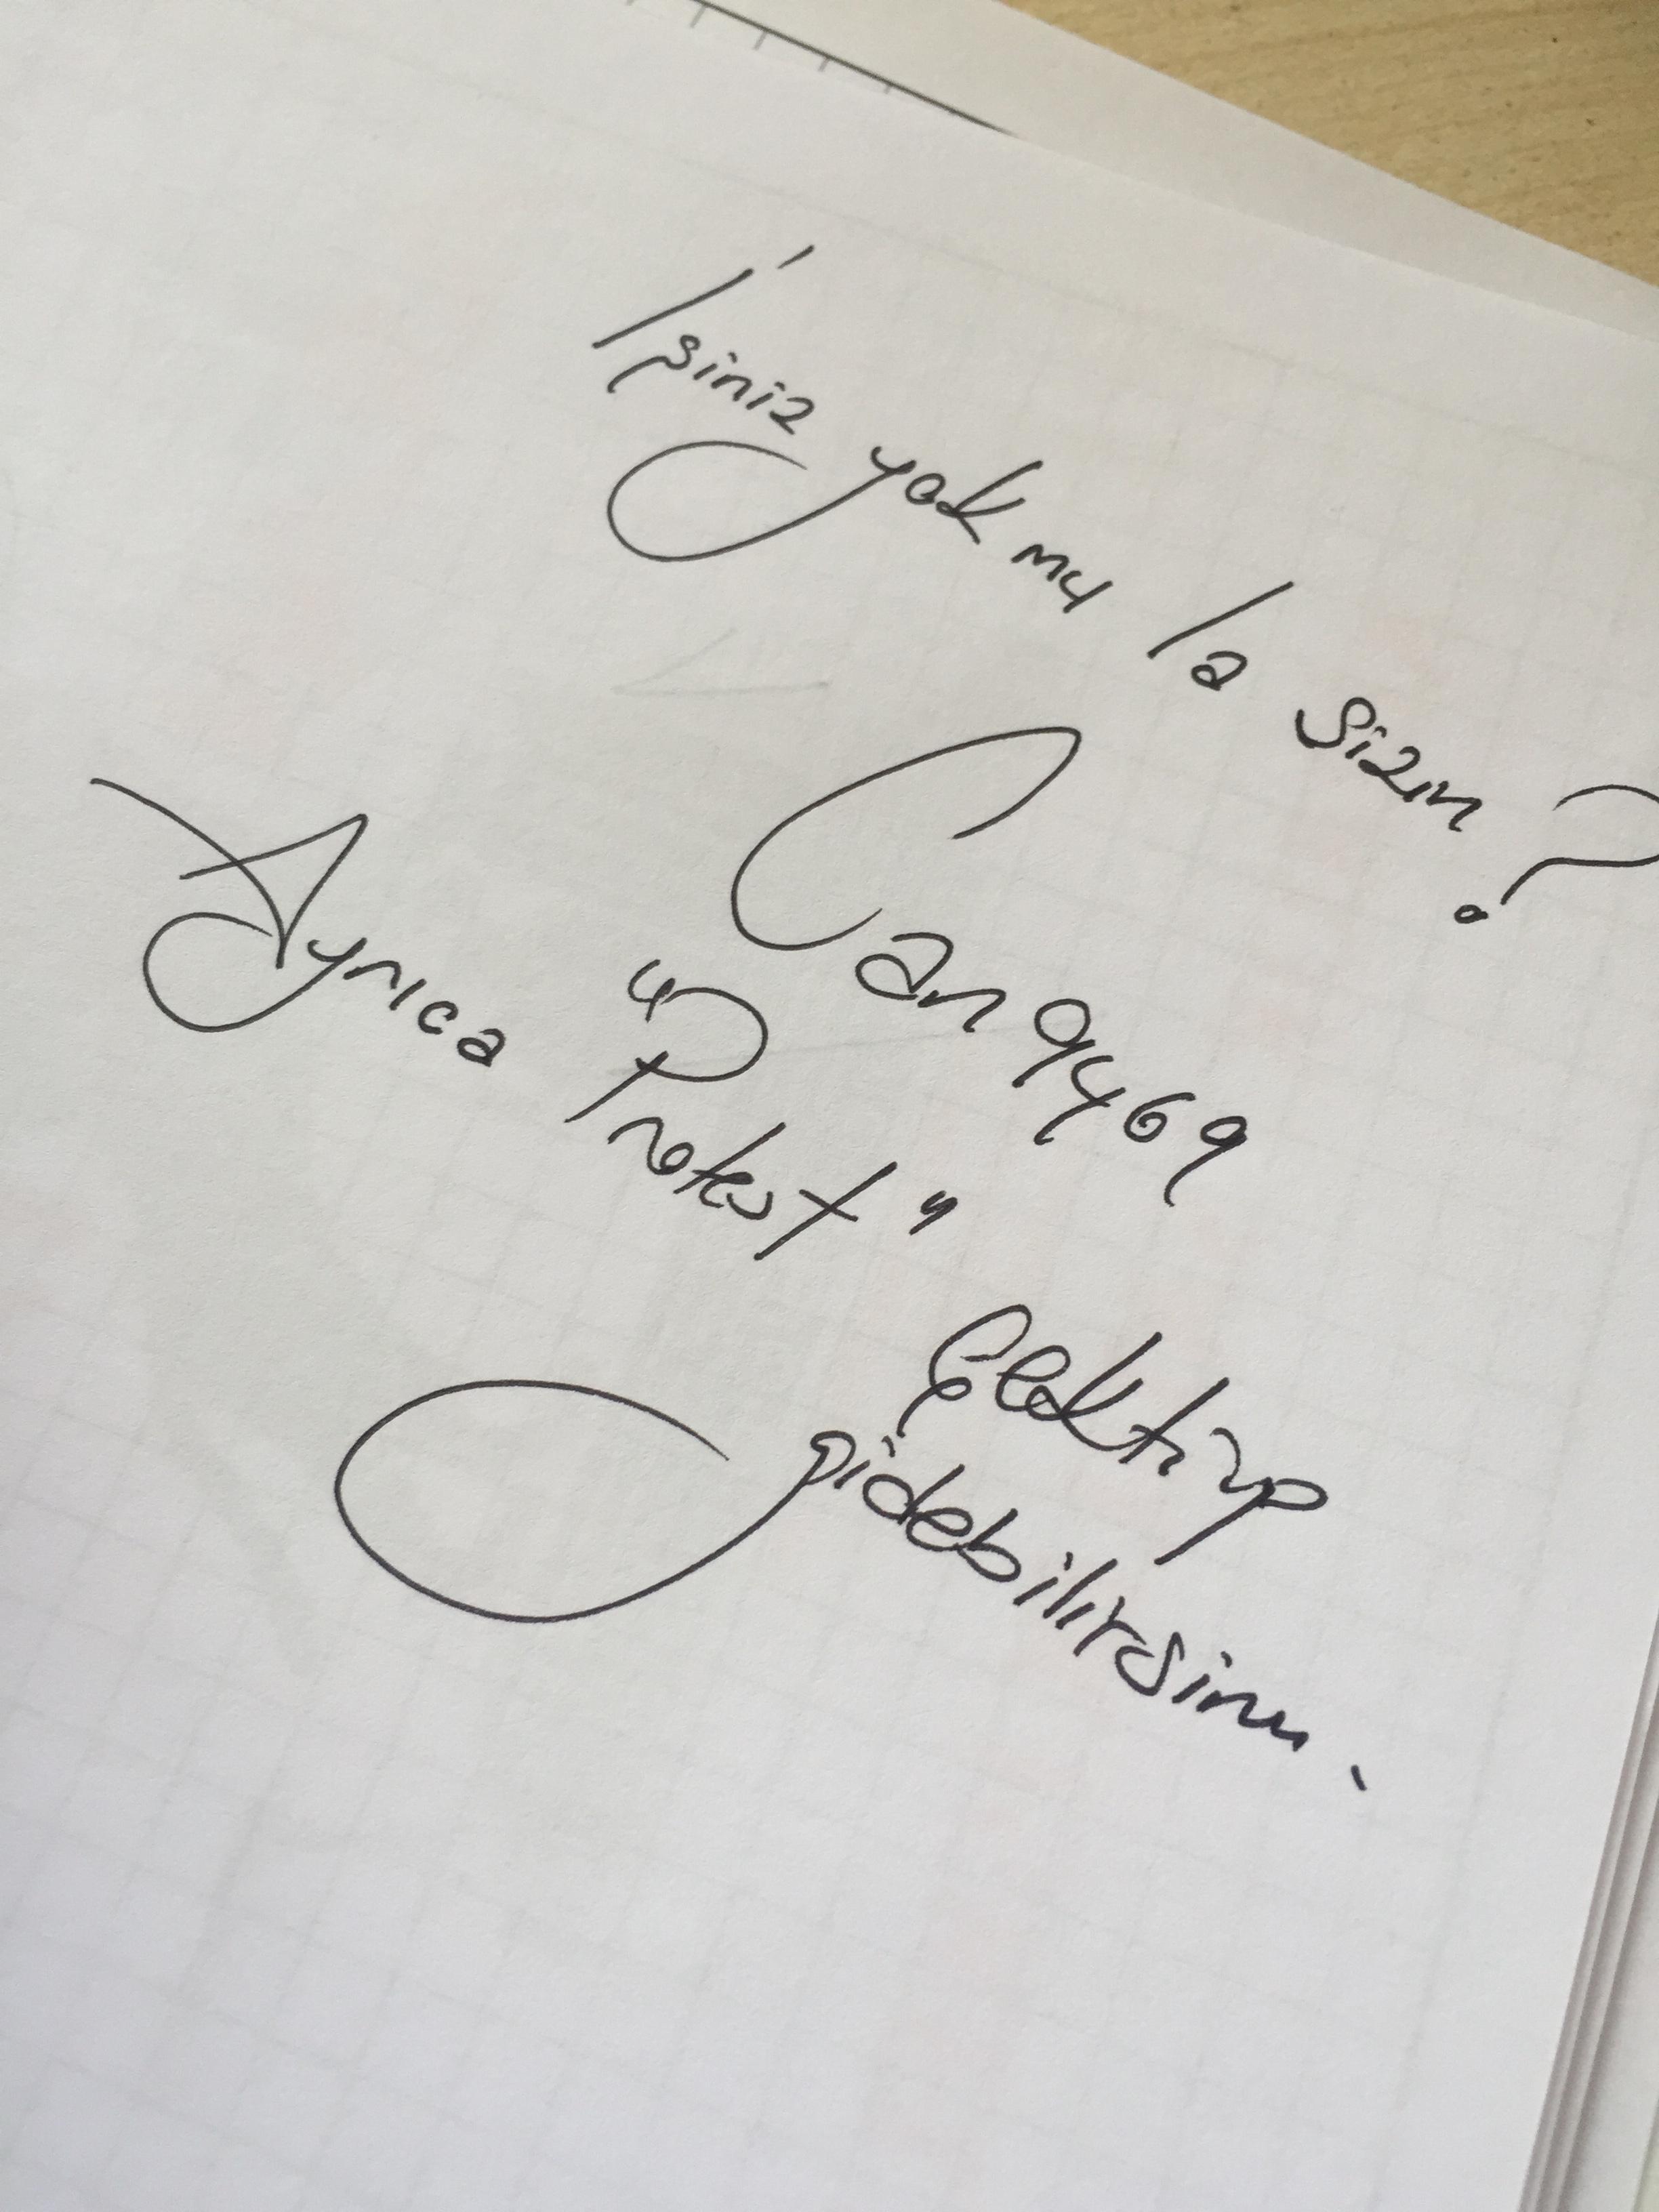 İşiniz yok mu la sizin?
Can9469
Ayrıca "Protest"
Çektirip
gidebilirsiniz.